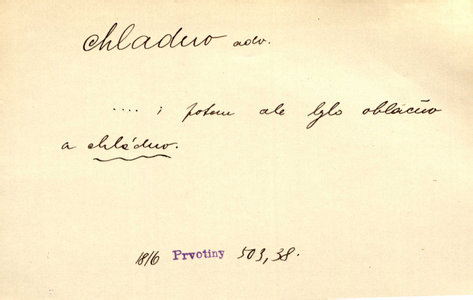 chladno adv.
.... i potom ale bylo oblačno
a chládno.
1816 Prvotiny 503, 38.